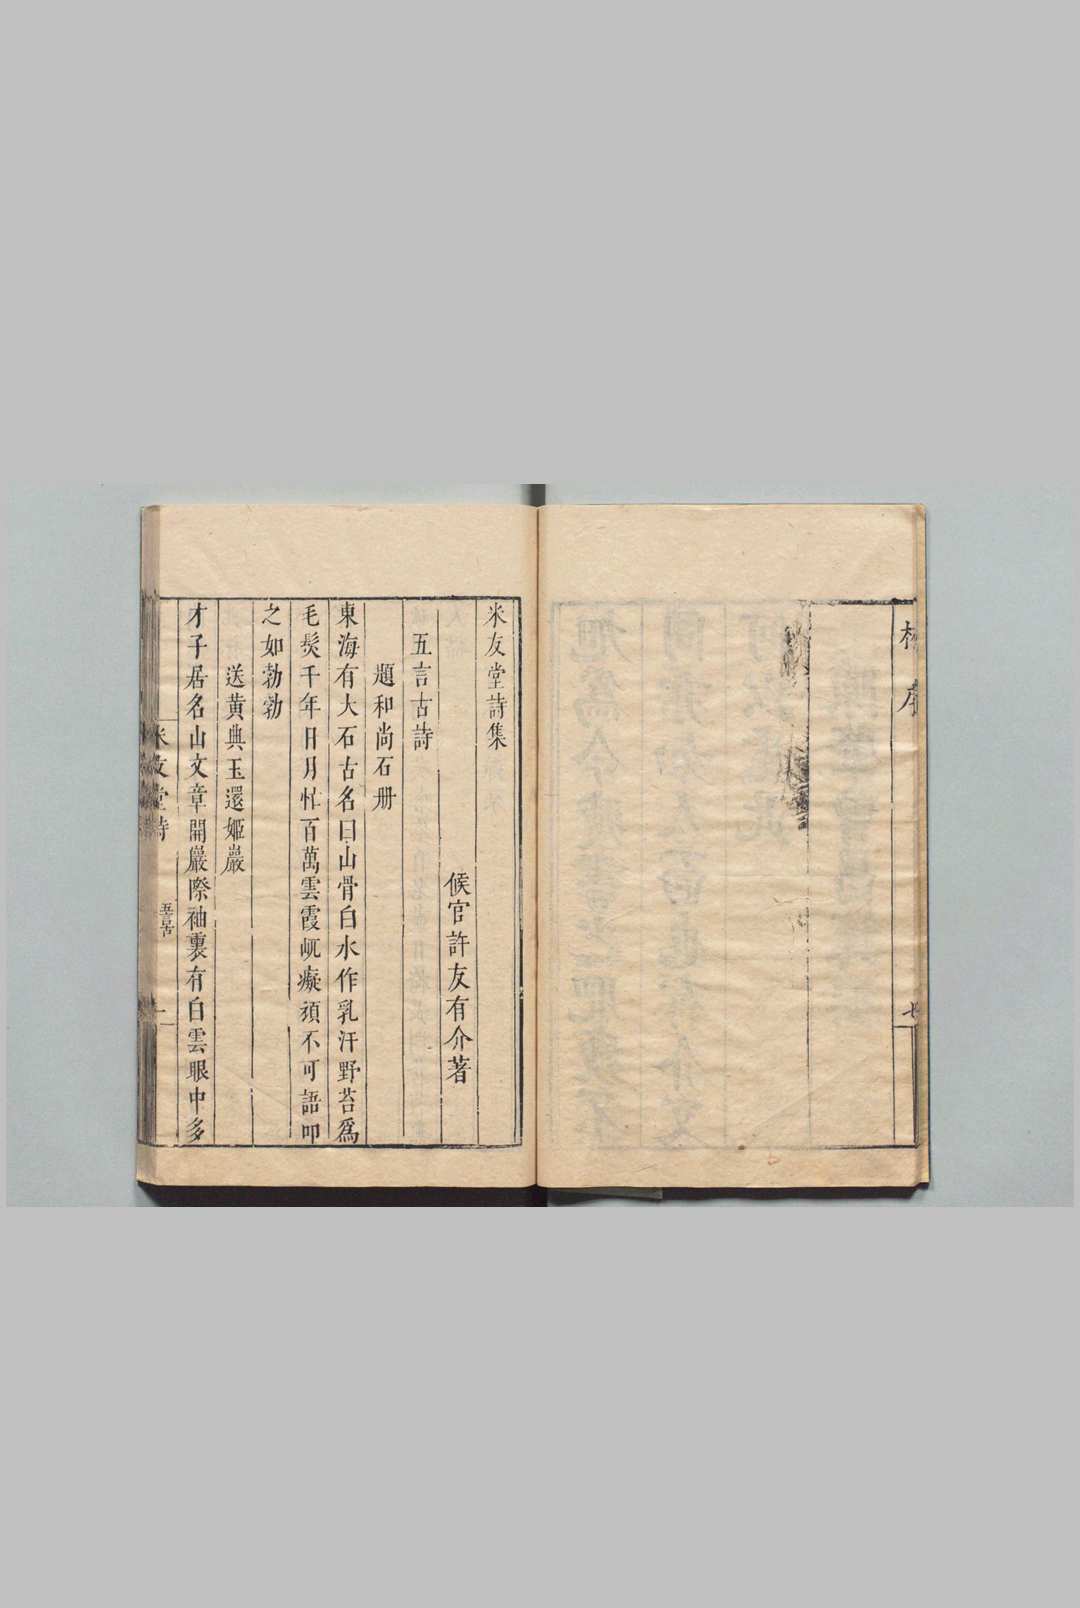 序
七
米友堂詩集
候官許友有介著
五言古詩
題和尚石册
東海有大石古名曰山骨白水作乳汗野苔爲
毛髮千年日月忙百萬雲霞屼癡頑不可語叩
之如勃勃
送黄典玉還姬巖
才子居名山文章開巖際袖裏有白雲眼中多
米友堂詩
五言古
一